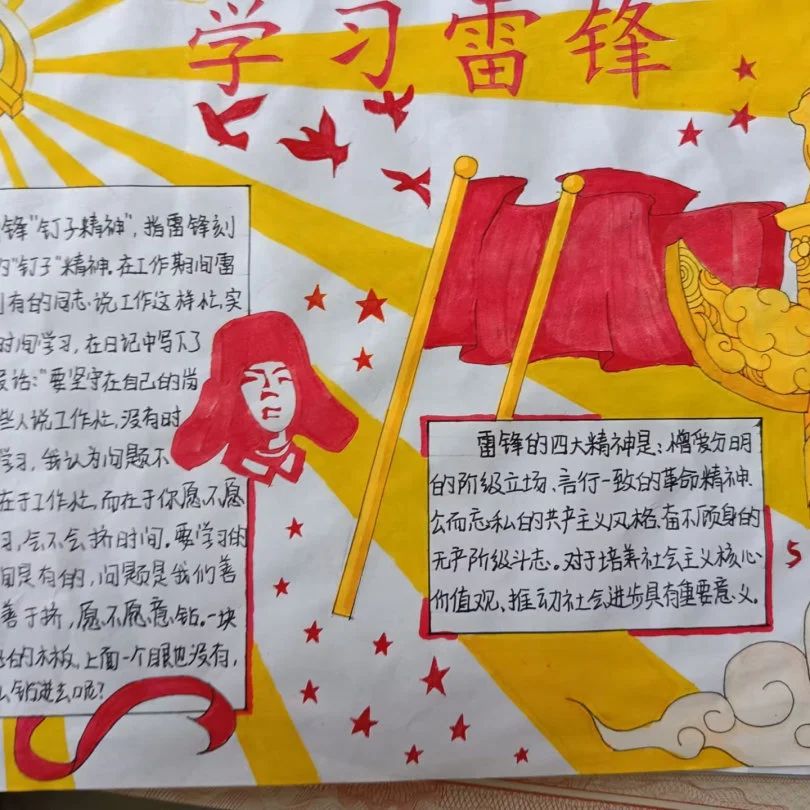 学习雷锋
锋"钉子精神", 指雷锋刻
的"钉子"精神.在工作期间雷
有的同志说工作这样忙,实
时间学习, 在日记中写下了
段话:"要坚守在自己的岗
些人说工作忙, 没有时
学习, 我认为问题不
在于工作忙, 而在于你愿不愿
习, 会不会挤时间. 要学习的
间是有的, 问题是我们善
善于挤, 愿不愿意钻.一块
的木板, 上面一个眼也没有,
么钻进去呢?
雷锋的四大精神是:憎爱分明
的阶级立场、言行一致的革命精神、
公而忘私的共产主义风格、奋不顾身的
无产阶级斗志。对于培养社会主义核心
价值观、推动社会进步具有重要意义。
5